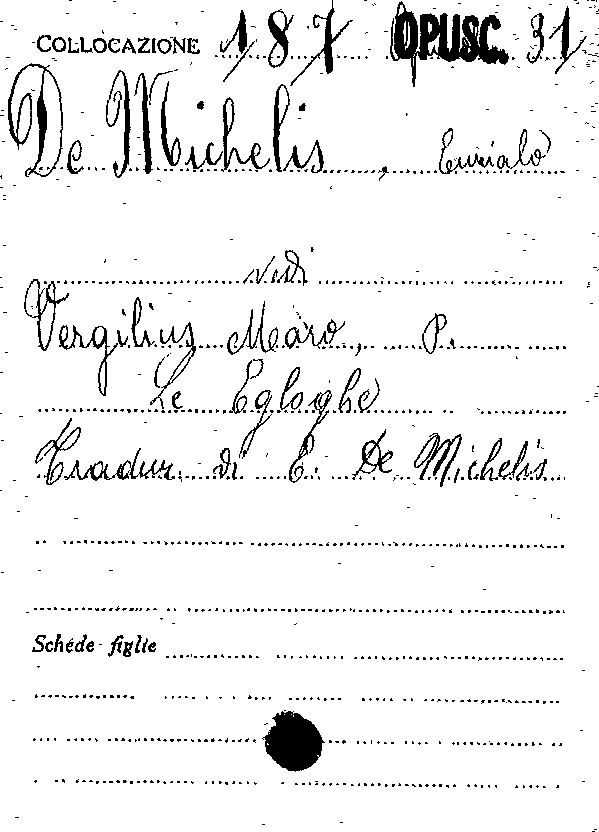 COLLOCAZIONE 187 OPUSC. 31
De Michelis, Eurialo
vedi
Vergilius Maro, P.
Le Egloghe
Tradur. di E. De Michelis
Schéde figlie